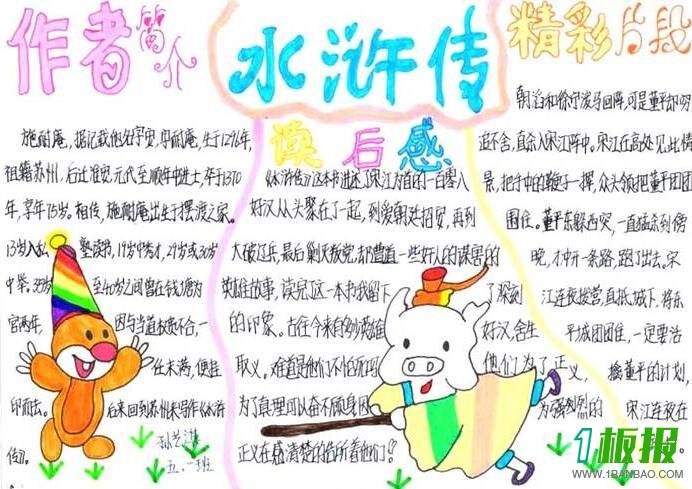 作者简介
施耐庵，据记载他名字安，号耐庵，生于1296年，
祖籍苏州，后迁淮安，元代至顺年中进士，卒于1370
年，享年75岁。相传，施耐庵出生于摆渡之家。
13岁入私塾读书，19岁中秀才，29岁或30岁
中举，35岁至40岁之间曾在钱塘为
官两年，因与当道权贵不合，一
任未满，便挂
印而去。后来回到苏州来写作《水浒
传》。
五.一班
水浒传
读后感
《水浒传》这本书讲述了宋江为首的一百零八
好汉从头聚在了起，到受朝廷招安，再到
大破辽兵，最后剿灭叛党，却遭遣一些奸人的谋害的
英雄故事，读完这一本书我留下了深刻
的印象。古往今来有多少英雄好汉，舍生
取义。难道是他们不怕死吗？他们为了正义，
为了真理可以奋不顾身，
正义在感清楚的告所着他们！
精彩片段
朝滔和徐宁拨马回阵，可是董平却穷
追不舍，直杀入宋江阵中，宋江在高处见此情
景，把手中的鞭子一挥，众头领把董平团团
围住。董平东躲西突，一直杀到傍
晚，才冲开一条路，跑了出去。宋
江连夜拔营，直抵城下，将东
平城团团住，一定要活
擒董平的计划，
宋江连夜在
1板报
WWW.1BANBAO.COM